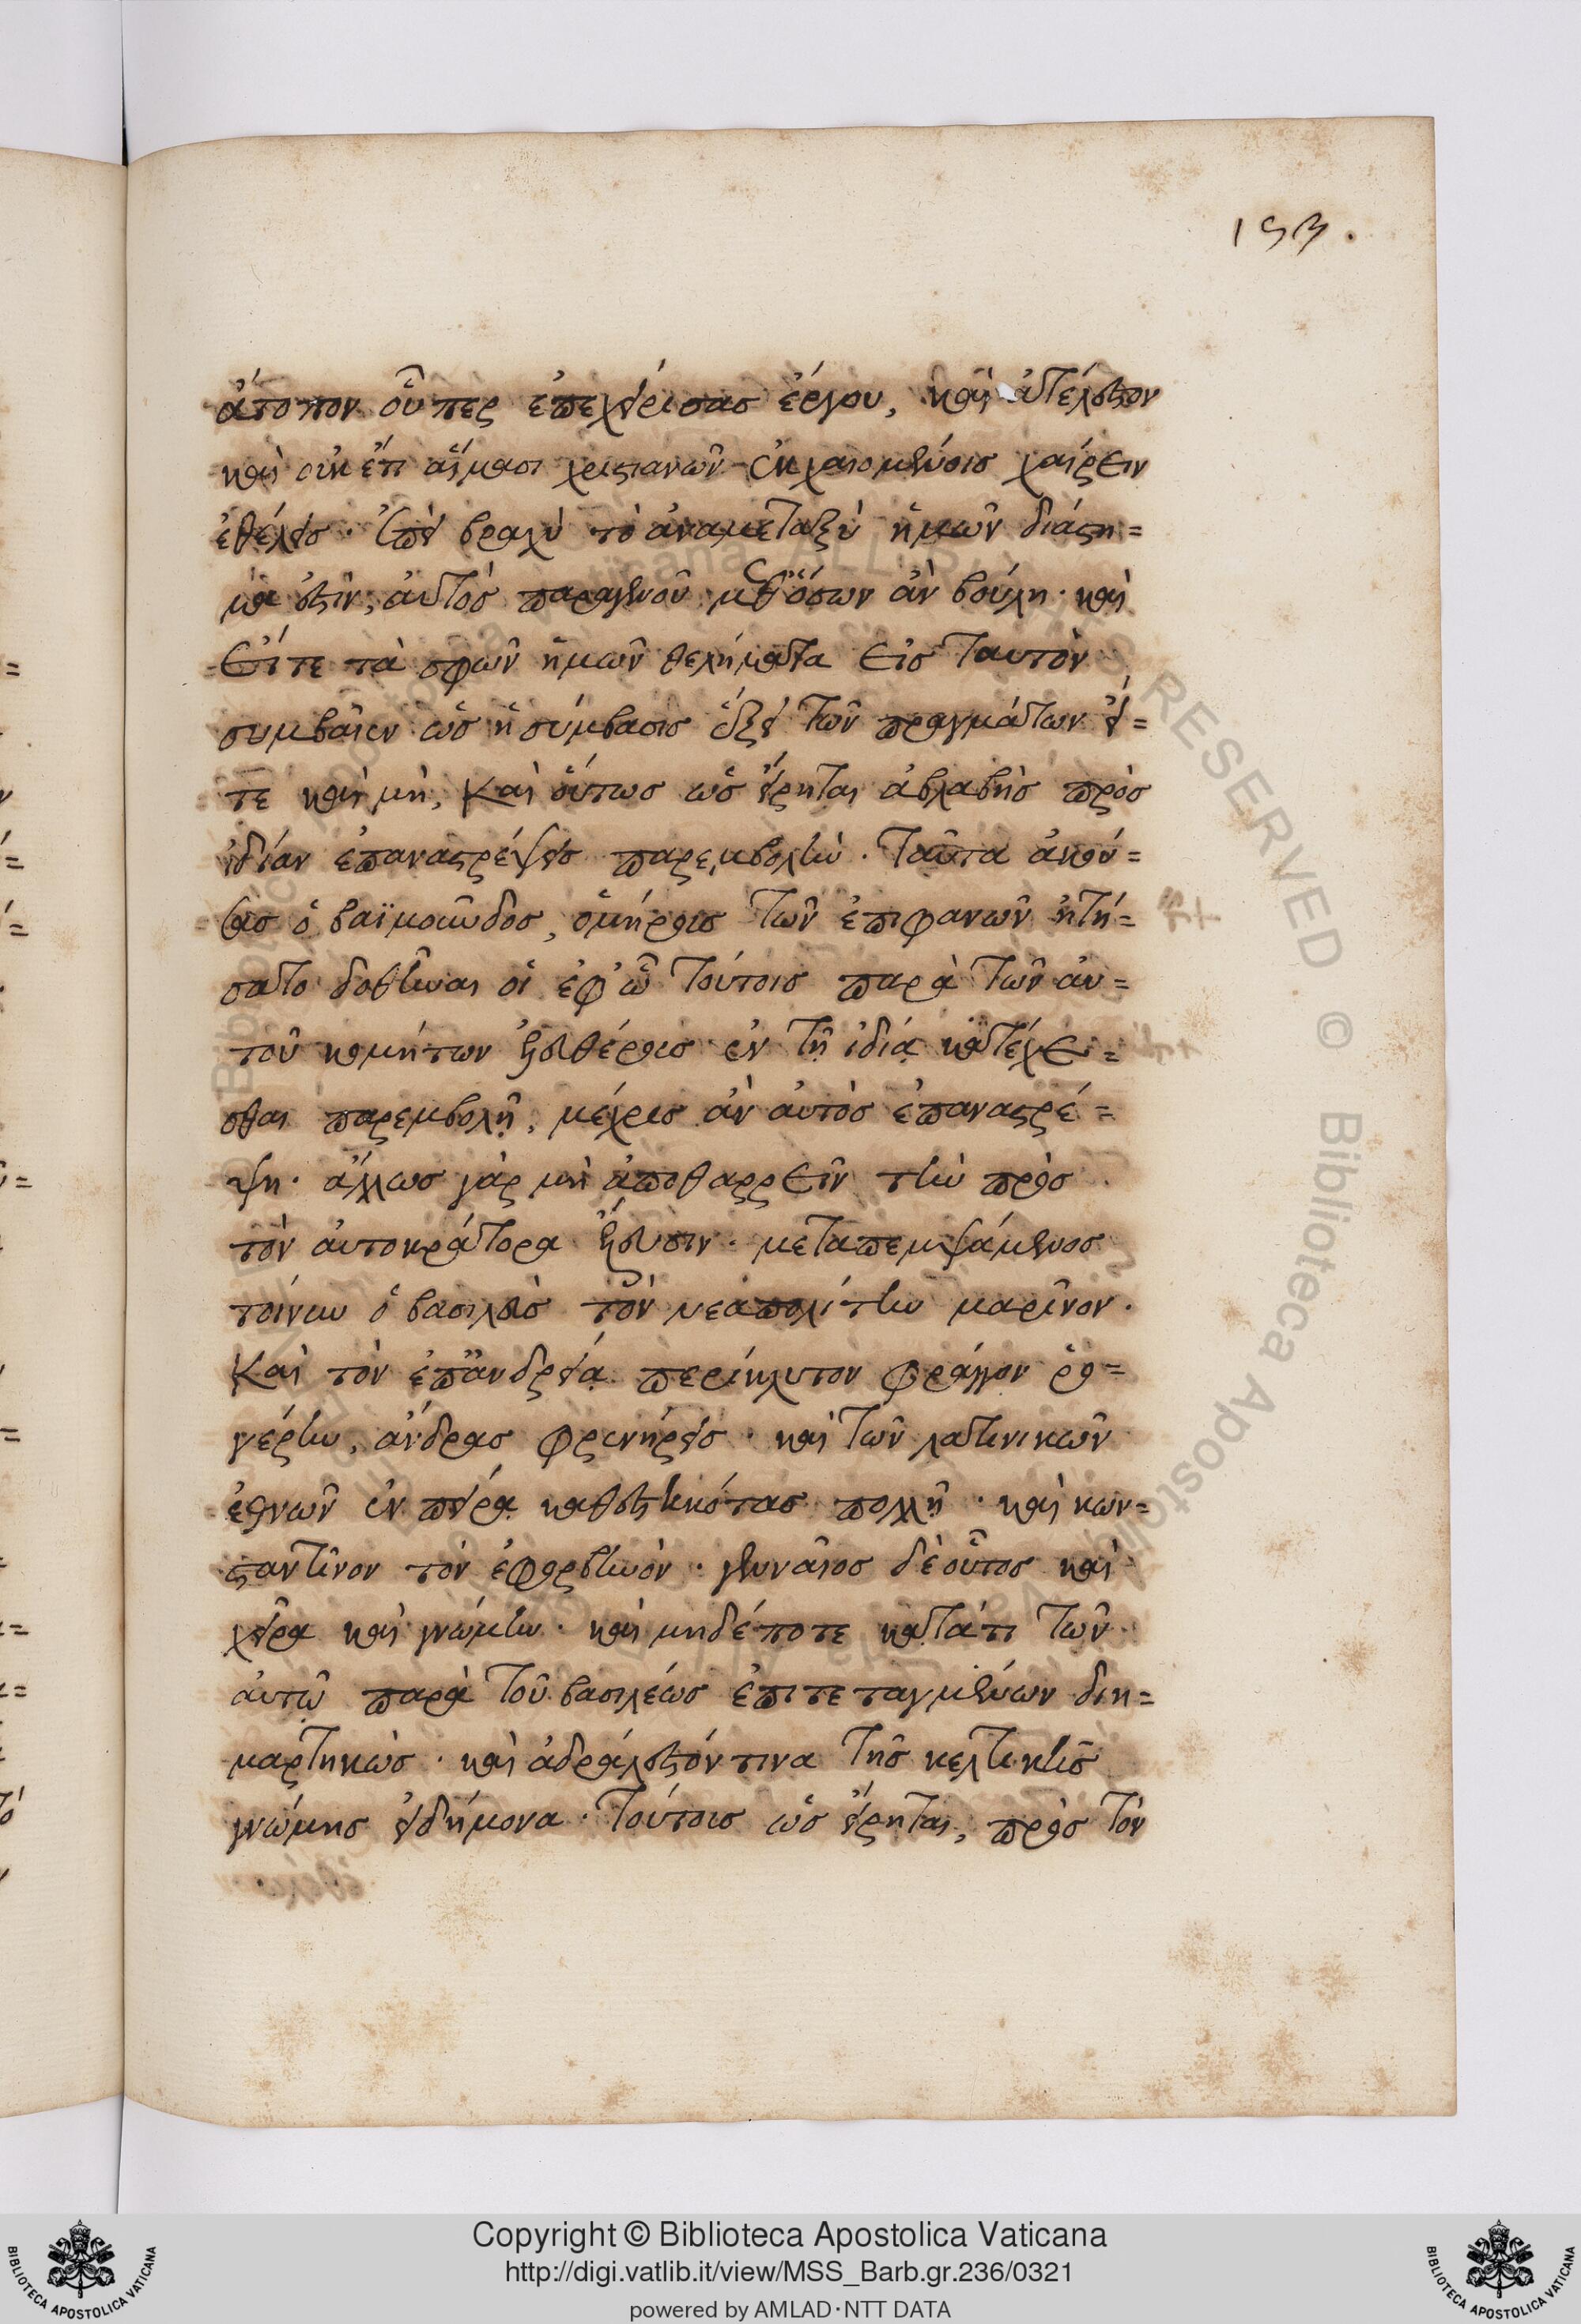 153.
ἄτοπον οὗπερ ἐπεχείρησας ἔργου, καὶ ἀτέλεστον
καὶ οὐκέτι αἵμασι χριστιανῶν ἐκχεομένοις χαίρειν
ἐθέλεις. ἐπεὶ βραχὺ τὸ ἀναμεταξὺ ἡμῶν διάστη=
μα ἐστὶν, αὐτὸς παραγενοῦ μεθ' ὅσων ἂν βούλη. καὶ
εἴτε τὰ σφῶν ἡμῶν θελήματα εἰς ταυτὸν
συμβαῖεν ὡς ἡ σύμβασις ἕξει τῶν πραγμάτων εἴ=
τε καὶ μὴ, καὶ οὕτως ὡς εἴρηται ἀβλαβὴς πρὸς
ἰδίαν ἐπαναστρέψεις παρεμβολήν. ταῦτα ἀκού=
σας ὁ βαϊμοῦνδος, ὁμήρους τῶν ἐπιφανῶν ᾐτή=
σατο δοθῆναι οἱ ἐφ' ᾧ τούτοις παρὰ τῶν αὐ=
τοῦ κομήτων ἐλευθέρους ἐν τῇ ἰδίᾳ κατέχε=
σθαι παρεμβολῇ, μέχρις ἂν αὐτὸς ἐπαναστρέ=
ψη. ἄλλως γὰρ μὴ ἀποθαρρεῖν τὴν πρὸς
τὸν αὐτοκράτορα ἔλευσιν. μεταπεμψάμενος
τοίνυν ὁ βασιλεὺς τὸν νεαπολίτην μαρῖνον.
καὶ τὸν ἐπ' ἀνδρείᾳ περίκλυτον φράγγον ῥο=
γέρην, ἄνδρας φρενήρεις. καὶ τῶν λατινικῶν
ἐθνῶν ἐν πείρᾳ καθεστηκότας πολλῇ. καὶ κων=
σταντῖνον τὸν ἐφορβηνὸν. γενναῖος δὲ οὗτος καὶ
χεῖρα καὶ γνώμην. καὶ μηδέποτε κατάτι τῶν
αὐτῷ παρὰ τοῦ βασιλέως ἐπιτεταγμένων διη=
μαρτηκὼς. καὶ ἀδράλεστόν τινα τῆς κελτικῆς
γνώμης εἰδήμονα. τούτοις ὡς εἴρηται, πρὸς τὸν
Copyright © Biblioteca Apostolica Vaticana
http://digi.vatlib.it/view/MSS_Barb.gr.236/0321
powered by AMLAD·NTT DATA